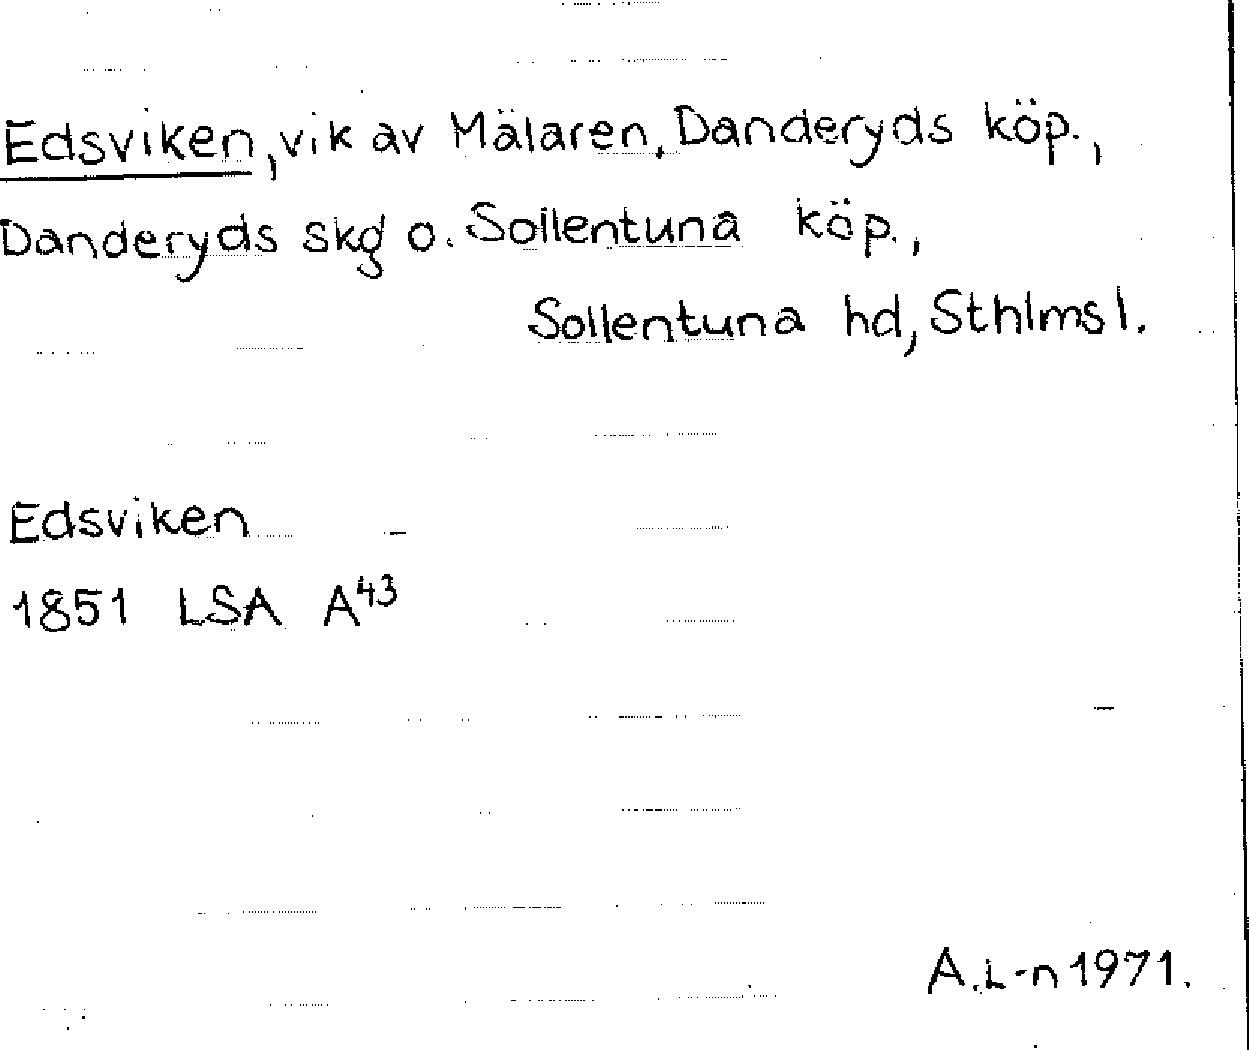 Edsviken, vik av Mälaren, Danderyds köp.,
Danderyds skg o. Sollentuna köp.,
Sollentuna hd, Sthlms l.
Edsviken
1851 LSA A43
A.L-n 1971.